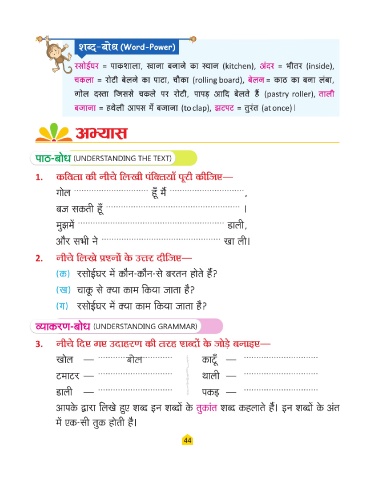 शब्द-बोध (Word-Power)
रसोईघर = पाकशाला, खाना बनाने का स्थान (kitchen), अंदर = भीतर (inside),
चकला = रोटी बेलने का पाटा, चौका (rolling board), बेलन = काठ का बना लंबा,
गोल दस्ता जिससे चकले पर रोटी, पापड़ आदि बेलते हैं (pastry roller), ताली
बजाना = हथेली आपस में बजाना (to clap), झटपट = तुरंत (at once)।
अभ्यास
पाठ-बोध (UNDERSTANDING THE TEXT)
1. कविता की नीचे लिखी पंक्तियाँ पूरी कीजिए—
गोल ............................ हूँ मैं ............................,
बज सकती हूँ .................................................. ।
मुझमें .................................................. डाली,
और सभी ने .............................................. खा ली।
2. नीचे लिखे प्रश्नों के उत्तर दीजिए—
(क) रसोईघर में कौन-कौन-से बरतन होते हैं?
(ख) चाकू से क्या काम किया जाता है?
(ग) रसोईघर में क्या काम किया जाता है?
व्याकरण-बोध (UNDERSTANDING GRAMMAR)
3. नीचे दिए गए उदाहरण की तरह शब्दों के जोड़े बनाइए—
खोल — ............बोल............ काटूँ — ............................
टमाटर — ............................ थाली — ............................
डाली — ............................ पकड़ — ............................
आपके द्वारा लिखे हुए शब्द इन शब्दों के तुकांत शब्द कहलाते हैं। इन शब्दों के अंत
में एक-सी तुक होती है।
44